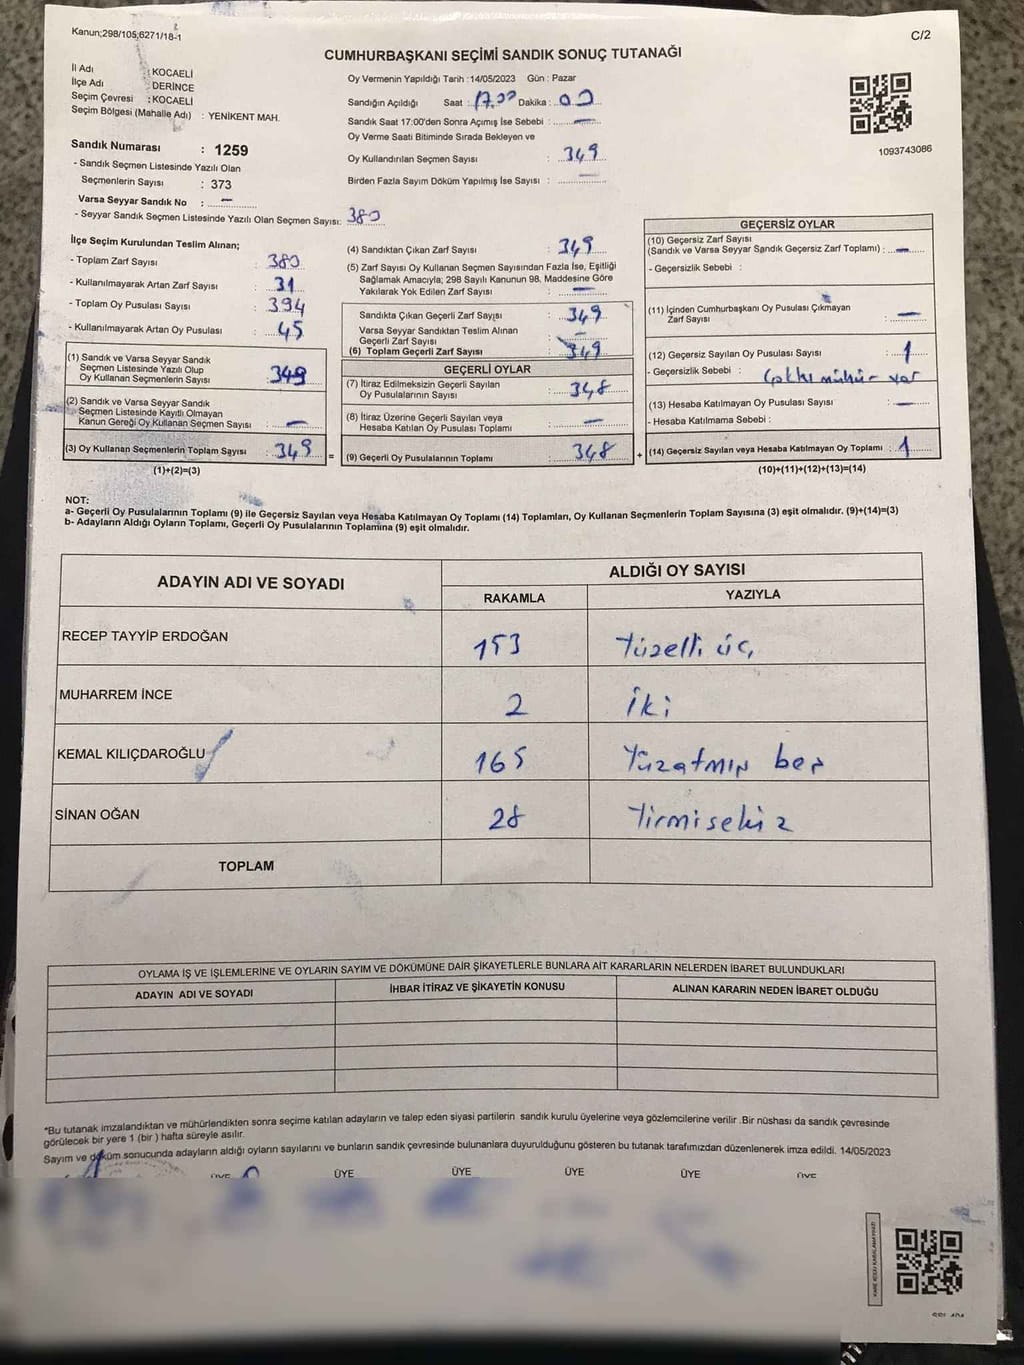 Kanun;298/105;6271/18-1
C/2
CUMHURBAŞKANI SEÇİMİ SANDIK SONUÇ TUTANAĞI
İl Adı : KOCAELİ
İlçe Adı : DERİNCE
Seçim Çevresi : KOCAELİ
Seçim Bölgesi (Mahalle Adı) : YENİKENT MAH.
Sandık Numarası : 1259
- Sandık Seçmen Listesinde Yazılı Olan
Seçmenlerin Sayısı : 373
Varsa Seyyar Sandık No : -
- Seyyar Sandık Seçmen Listesinde Yazılı Olan Seçmen Sayısı: 380
Oy Vermenin Yapıldığı Tarih :14/05/2023 Gün : Pazar
Sandığın Açıldığı Saat : 17.00 Dakika : 00
Sandık Saat 17:00'den Sonra Açımış İse Sebebi : -
Oy Verme Saati Bitiminde Sırada Bekleyen ve
Oy Kullandırılan Seçmen Sayısı : 349
Birden Fazla Sayım Döküm Yapılmış İse Sayısı : -
1093743086
İlçe Seçim Kurulundan Teslim Alınan;
- Toplam Zarf Sayısı : 380
- Kullanılmayarak Artan Zarf Sayısı : 31
- Toplam Oy Pusulası Sayısı : 394
- Kullanılmayarak Artan Oy Pusulası : 45
(1) Sandık ve Varsa Seyyar Sandık
Seçmen Listesinde Yazılı Olup
Oy Kullanan Seçmenlerin Sayısı : 349
(2) Sandık ve Varsa Seyyar Sandık
Seçmen Listesinde Kayıtlı Olmayan
Kanun Gereği Oy Kullanan Seçmen Sayısı : -
(3) Oy Kullanan Seçmenlerin Toplam Sayısı : 349
(1)+(2)=(3)
(4) Sandıktan Çıkan Zarf Sayısı : 349
(5) Zarf Sayısı Oy Kullanan Seçmen Sayısından Fazla İse, Eşitliği
Sağlamak Amacıyla; 298 Sayılı Kanunun 98. Maddesine Göre
Yakılarak Yok Edilen Zarf Sayısı : -
Sandıkta Çıkan Geçerli Zarf Sayısı : 349
Varsa Seyyar Sandıktan Teslim Alınan
Geçerli Zarf Sayısı : -
(6) Toplam Geçerli Zarf Sayısı : 349
GEÇERLİ OYLAR
(7) İtiraz Edilmeksizin Geçerli Sayılan
Oy Pusulalarının Sayısı : 348
(8) İtiraz Üzerine Geçerli Sayılan veya
Hesaba Katılan Oy Pusulaları Toplamı : -
= (9) Geçerli Oy Pusulalarının Toplamı : 348 +
GEÇERSİZ OYLAR
(10) Geçersiz Zarf Sayısı
(Sandık ve Varsa Seyyar Sandık Geçersiz Zarf Toplamı) : -
- Geçersizlik Sebebi :
(11) İçinden Cumhurbaşkanı Oy Pusulası Çıkmayan
Zarf Sayısı : -
(12) Geçersiz Sayılan Oy Pusulası Sayısı : 1
- Geçersizlik Sebebi : mühür var
(13) Hesaba Katılmayan Oy Pusulası Sayısı : -
- Hesaba Katılmama Sebebi :
(14) Geçersiz Sayılan veya Hesaba Katılmayan Oy Toplamı : 1
(10)+(11)+(12)+(13)=(14)
NOT:
a- Geçerli Oy Pusulalarının Toplamı (9) ile Geçersiz Sayılan veya Hesaba Katılmayan Oy Toplamı (14) Toplamları, Oy Kullanan Seçmenlerin Toplam Sayısına (3) eşit olmalıdır. (9)+(14)=(3)
b- Adayların Aldığı Oyların Toplamı, Geçerli Oy Pusulalarının Toplamına (9) eşit olmalıdır.
ADAYIN ADI VE SOYADI
ALDIĞI OY SAYISI
RAKAMLA YAZIYLA
RECEP TAYYİP ERDOĞAN 153 Yüzelli üç
MUHARREM İNCE 2 iki
KEMAL KILIÇDAROĞLU 165 Yüzatmış beş
SİNAN OĞAN 28 Yirmisekiz
TOPLAM
OYLAMA İŞ VE İŞLEMLERİNE VE OYLARIN SAYIM VE DÖKÜMÜNE DAİR ŞİKAYETLERLE BUNLARA AİT KARARLARIN NELERDEN İBARET BULUNDUKLARI
ADAYIN ADI VE SOYADI İHBAR İTİRAZ VE ŞİKAYETİN KONUSU ALINAN KARARIN NEDEN İBARET OLDUĞU
*Bu tutanak imzalandıktan ve mühürlendikten sonra seçime katılan adayların ve talep eden siyasi partilerin sandık kurulu üyelerine veya gözlemcilerine verilir .Bir nüshası da sandık çevresinde
görülecek bir yere 1 (bir ) hafta süreyle asılır.
Sayım ve döküm sonucunda adayların aldığı oyların sayılarını ve bunların sandık çevresinde bulunanlara duyurulduğunu gösteren bu tutanak tarafımızdan düzenlenerek imza edildi. 14/05/2023
ÜYE ÜYE ÜYE ÜYE ÜYE ÜYE